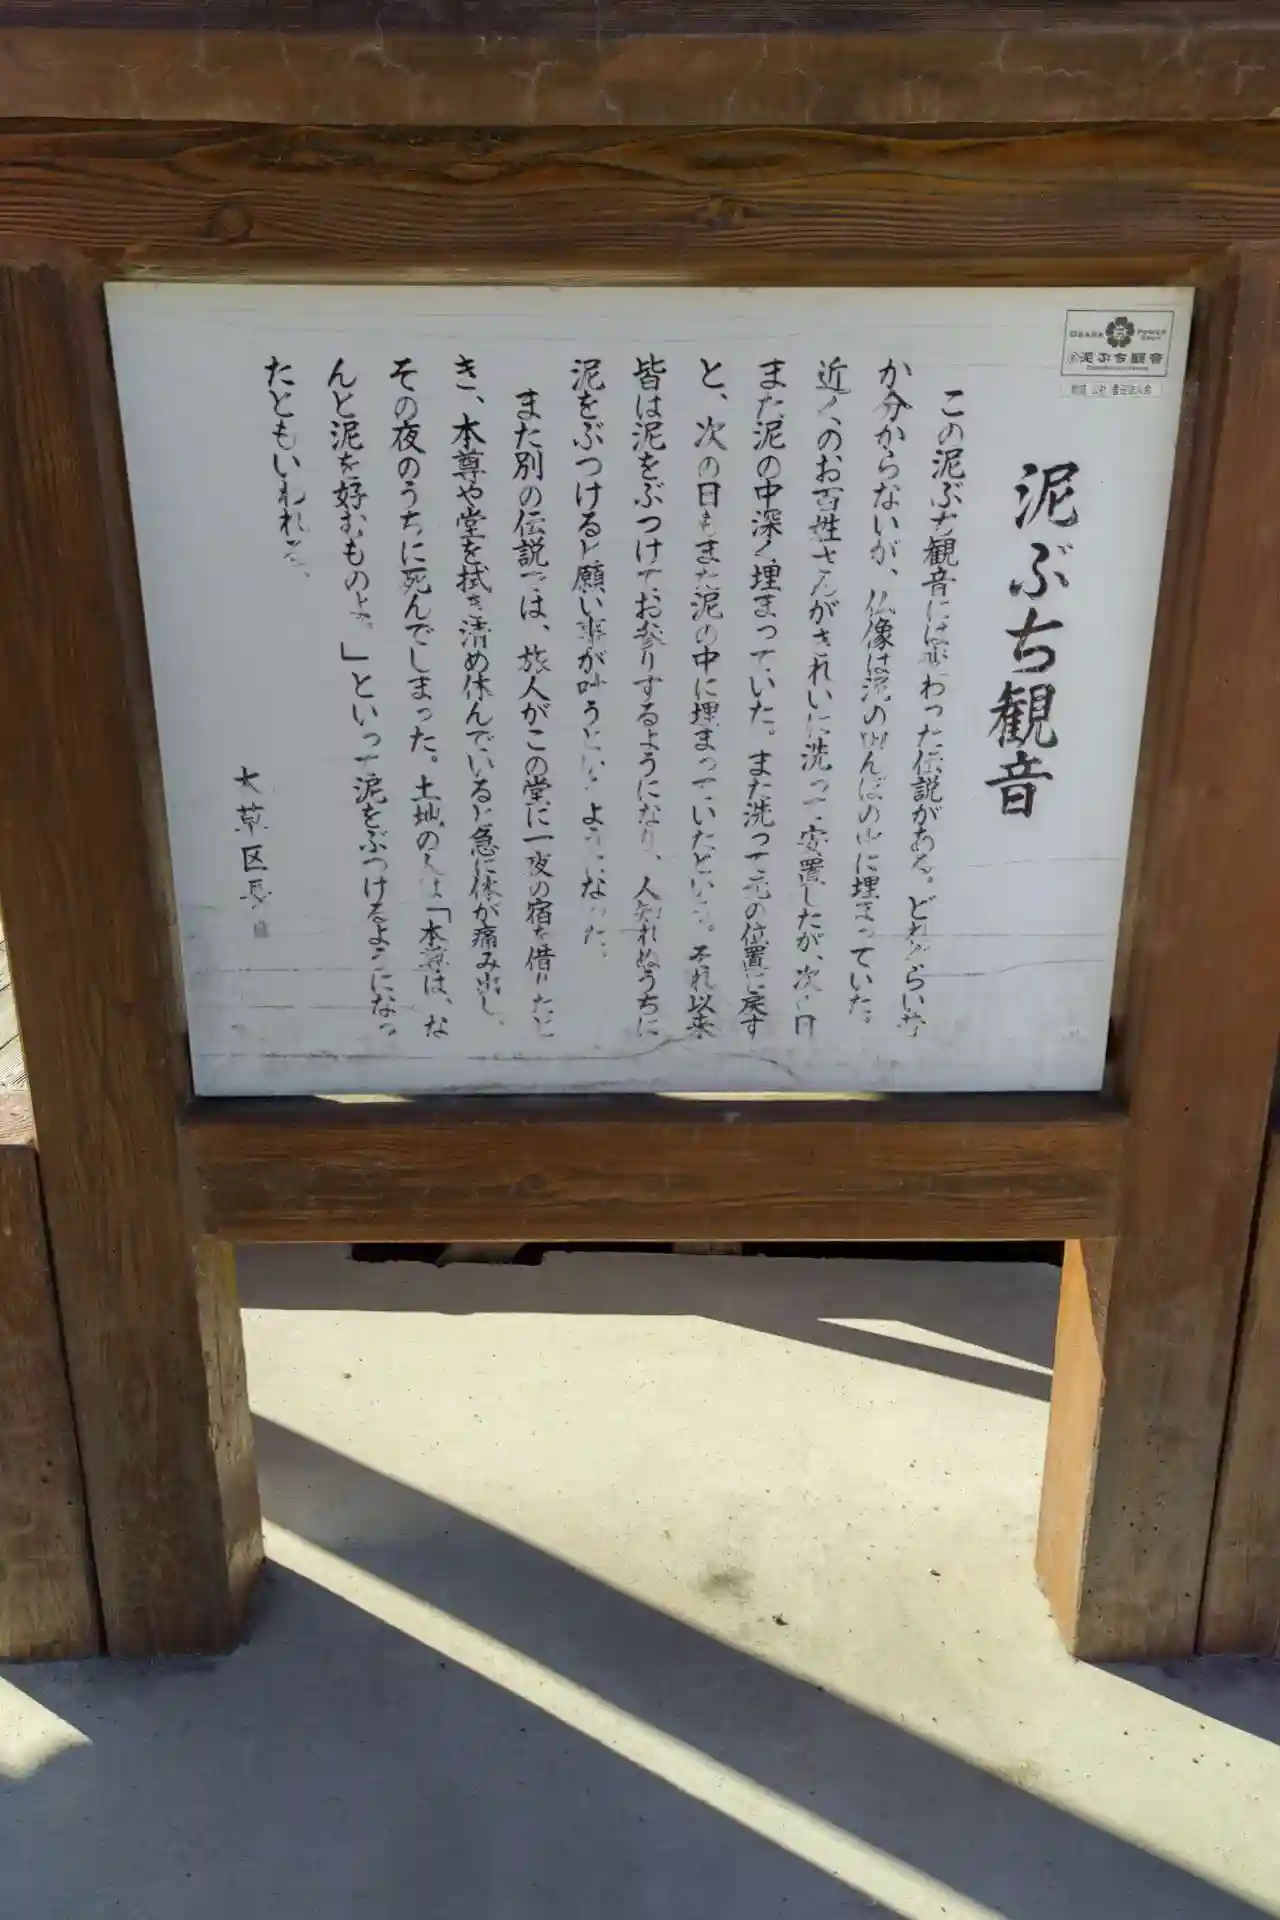 OBARA POWER SPOT
泥ぶち観音
泥ぶち観音
この泥ぶち観音には変わった伝説がある。どれくらい昔
か分からないが、仏像は泥の田んぼの中に埋まっていた。
近くのお百姓さんがきれいに洗って安置したが、次の日
また泥の中深く埋まっていた。また洗って元の位置に戻す
と、次の日もまた泥の中に埋まっていたという。それ以来
皆は泥をぶつけてお参りするようになり、人知れぬうちに
泥をぶつけると願い事が叶うというようになった。
また別の伝説では、旅人がこの堂に一夜の宿を借りたと
き、本尊や堂を拭き清め休んでいると急に体が痛み出し、
その夜のうちに死んでしまった。土地の人は「本尊は、な
んと泥を好むものよ。」といって泥をぶつけるようになっ
たともいわれる。
大草区長